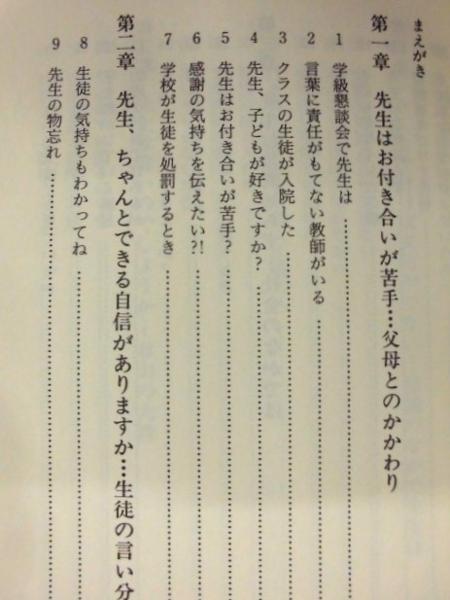 まえがき
第一章　先生はお付き合いが苦手…父母とのかかわり
1　学級懇談会で先生は
2　言葉に責任がもてない教師がいる
3　クラスの生徒が入院した
4　先生、子どもが好きですか?
5　先生はお付き合いが苦手?
6　感謝の気持ちを伝えたい?!
7　学校が生徒を処罰するとき
第二章　先生、ちゃんとできる自信がありますか…生徒の言い分
8　生徒の気持ちもわかってね
9　先生の物忘れ